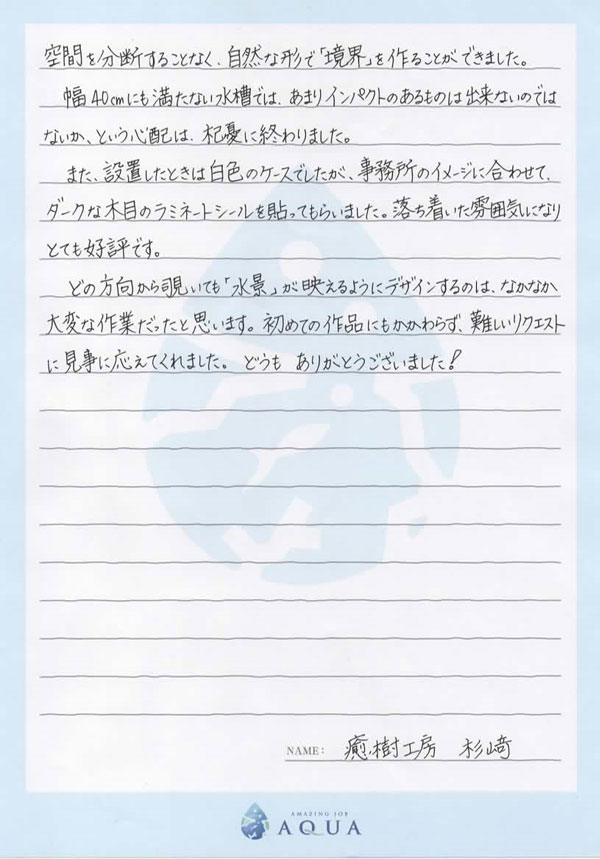 空間を分断することなく、自然な形で「境界」を作ることができました。
幅40cmにも満たない水槽では、あまりインパクトのあるものは出来ないのでは
ないか、という心配は、杞憂に終わりました。
また、設置したときは白色のケースでしたが、事務所のイメージに合わせて、
ダークな木目のラミネートシールを貼ってもらいました。落ち着いた雰囲気になり
とても好評です。
どの方向から覗いても「水景」が映えるようにデザインするのは、なかなか
大変な作業だったと思います。初めての作品にもかかわらず、難しいリクエスト
に見事に応えてくれました。どうも ありがとうございました!
NAME: 癒樹工房 杉﨑
AMAZING JOB
AQUA